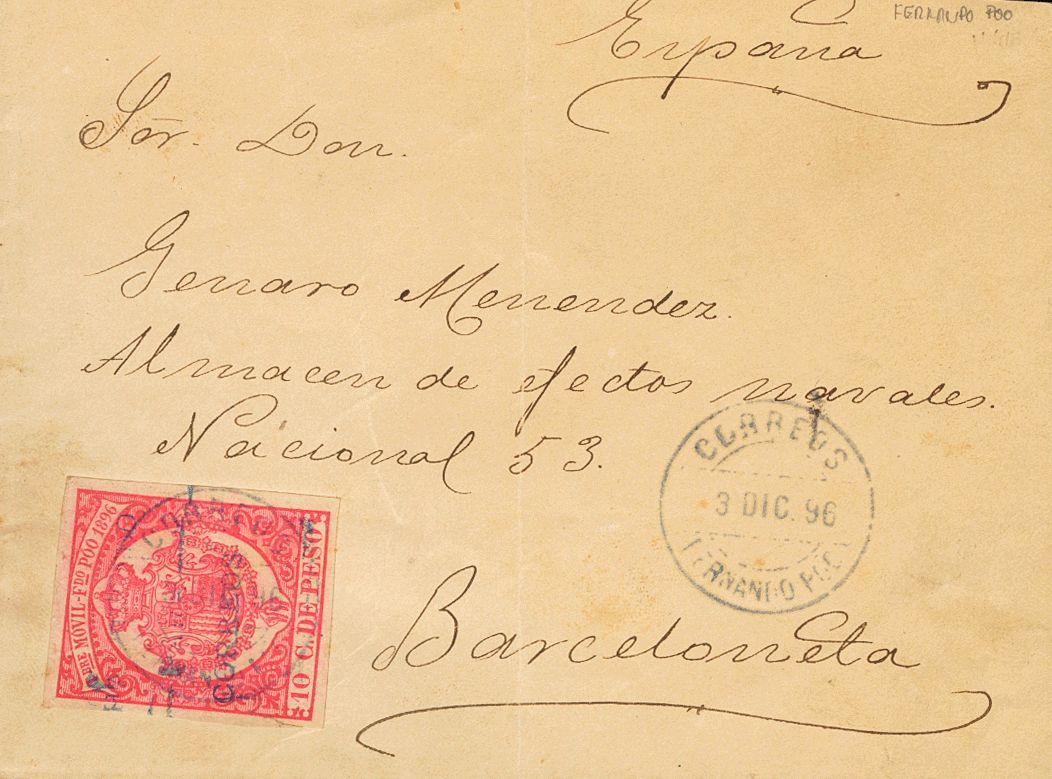 FERNANDO POO
España
Sor. Don.
Genaro Menendez.
Almacen de efectos navales.
Nacional 53.
CORREOS
3 DIC. 96
FERNANDO POO
TIMBRE MÓVIL-FDO POO 1896
CORREOS
10 C. DE PESO
Barceloneta